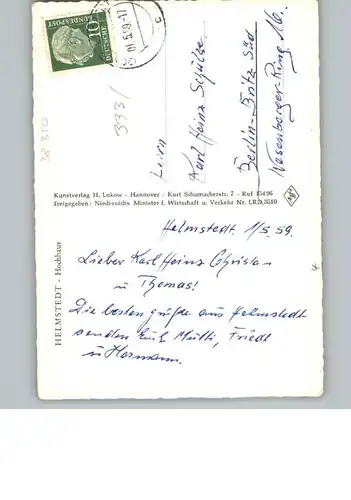 DEUTSCHE BUNDESPOST
10
333/
38 350
Herrn
Karl Heinz Schulze
Berlin-Britz Süd
Wesenberger-Ring 16.
Kunstverlag H. Lukow - Hannover - Kurt Schumacherstr. 7 - Ruf 15496
Freigegeben: Niedersächs. Minister f. Wirtschaft u. Verkehr Nr.
HELMSTEDT - Hochhaus
Helmstedt, 1/5.59.
Lieber Karl Heinz,
u Thomas!
Die besten Grüße aus Helmstedt
senden Euch Mutti, Friedl
u Hermann.